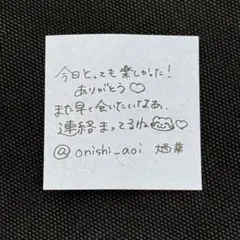 今日とっても楽しかった!
ありがとう♡
また早く会いたいなあ、
連絡まってるね♡
@onishi_aoi